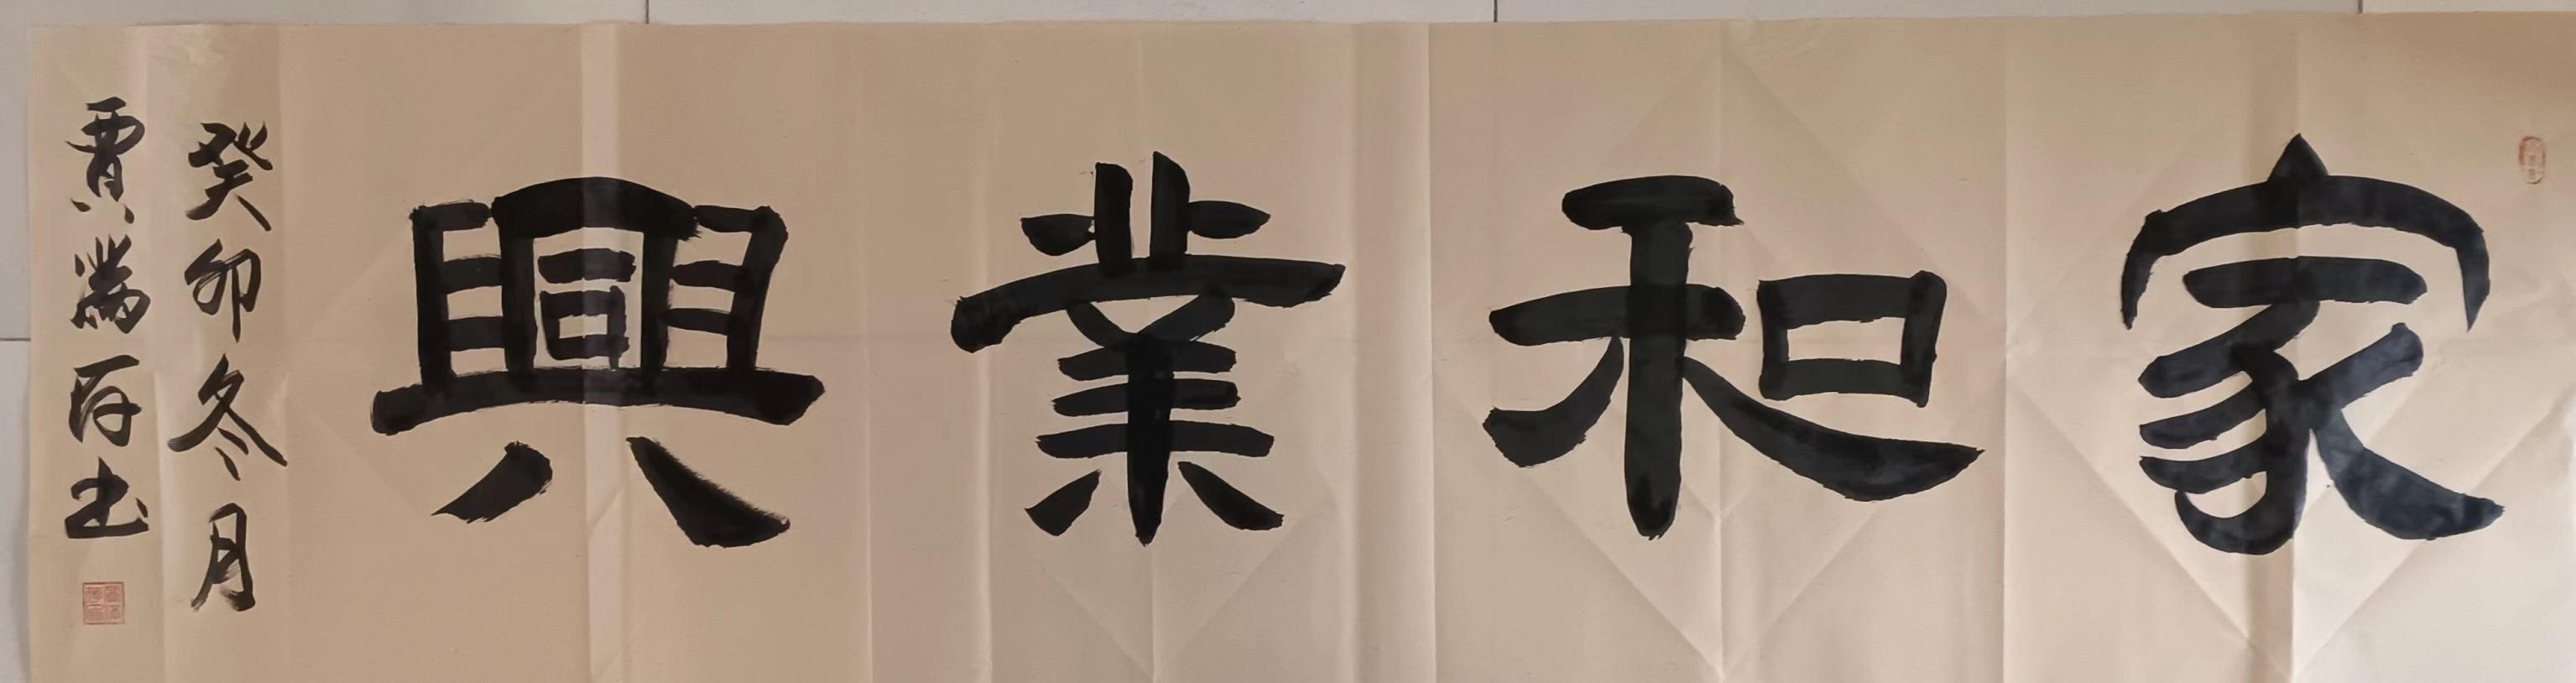 家和業興
癸卯冬月
賈瑞存书